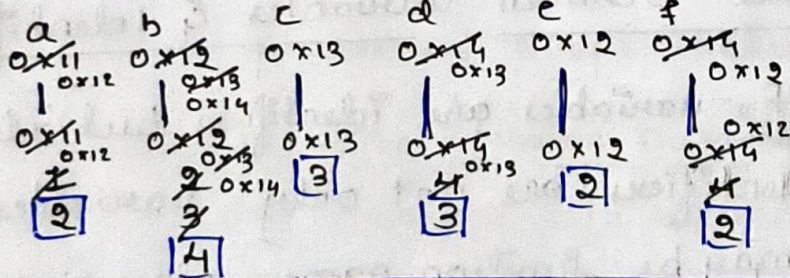 a b c d e f
0x11 0x12 0x13 0x14 0x12 0x14
0x12 0x13 0x13 0x12
0x14
0x11 0x12 0x13 0x14 0x12 0x12
0x12 0x13 0x13 0x14
1 2 0x14 3 4 2 4
2 3 3 2
4